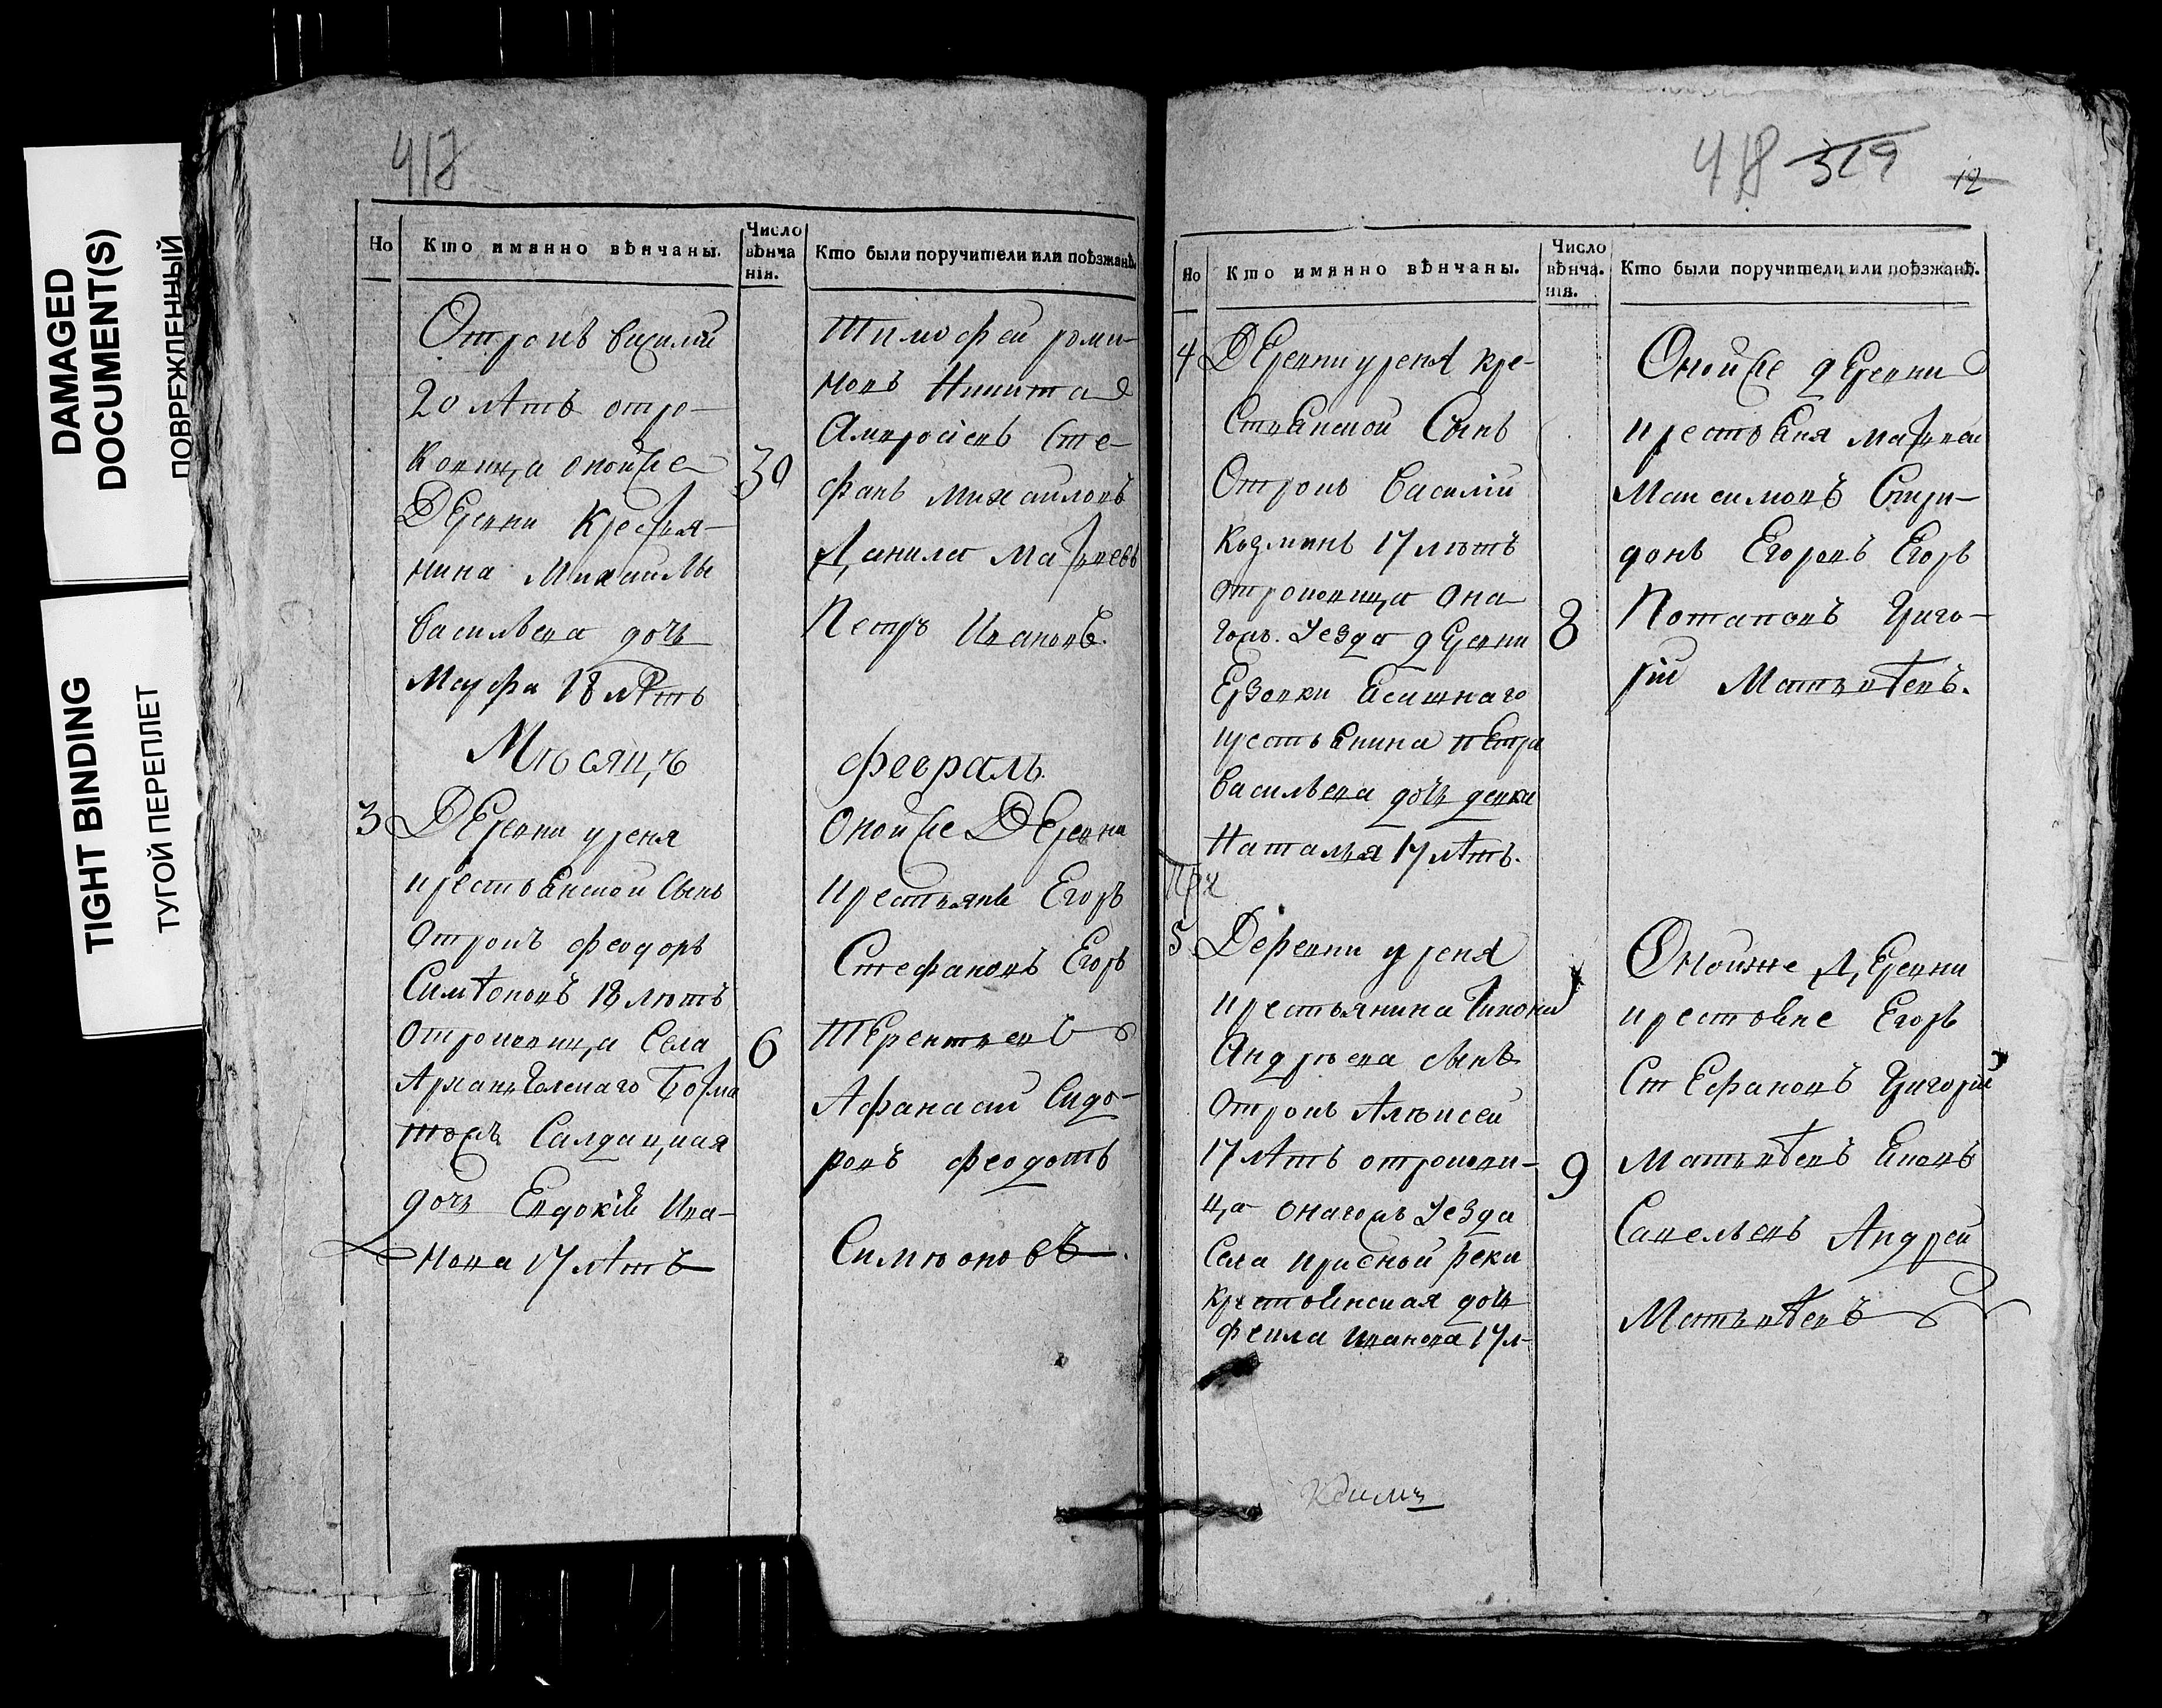 DAMAGED
DOCUMENT(S)
ПОВРЕЖДЕННЫЙ
TIGHT BINDING
ТУГОЙ ПЕРЕПЛЕТ
417
Но
Кто имянно вѣнчаны.
Число
вѣнча
нія.
Кто были поручители или поѣзжанѣ.
Отрокъ василій
20 лѣтъ отро-
ковица онойже
Деревни крестья-
нина Михаилы
васильева дочь
Марфа 18 лѣтъ
30
Тимофей роми-
новъ Никита
Амвросіевъ Сте-
фанъ Михаиловъ
Данила Матвеевъ
Петръ Ивановъ.
Мѣсяцъ
февраль
3
Деревни уреня
крестьянской сынъ
Отрокъ феодоръ
Симѣоновъ 18 лѣтъ
Отроковица Села
Архангелскаго
тожъ Салдацкая
дочь Евдокія Ива-
нова 17 лѣтъ
6
Онойже Деревни
крестьяня Егоръ
Стефановъ Егоръ
Терентьевъ
Афанасий Сидо-
ровъ феодотъ
Симѣоновъ.
418 319 12
Но
Кто имянно вѣнчаны.
Число
вѣнча.
нія.
Кто были поручители или поѣзжанѣ.
4
Деревни уреня кре-
стьянской Сынъ
Отрокъ василій
Козминъ 17 лѣтъ
отроковица она
гожъ уезда деревни
Ясашнаго
крестьянина петра
васильева дочь девка
Наталья 17 лѣтъ.
8
Онойже деревни
крестьяня Матвеи
Максимовъ Спири-
донъ Егоровъ Егоръ
Потаповъ Григо-
рій Матвѣевъ.
5
Деревни уреня
крестьянина Тихона
Андрѣева сынъ
Отрокъ Алѣксей
17 лѣтъ отрокови-
ца онагожъ уезда
Села реки
крестьянская дочь
фекла иванова 17 л-
9
Онойже Деревни
крестьяне Егоръ
Стефановъ Григорій
Матвѣевъ Яковъ
Савельевъ Андрей
Матвѣевъ